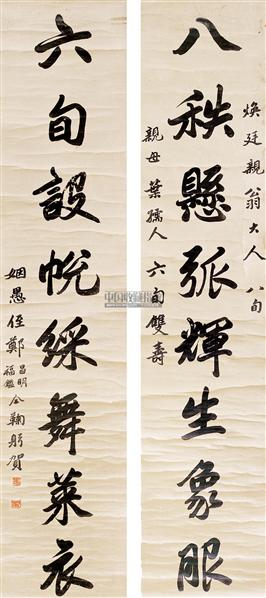 煥廷親翁大人八旬
親母葉孺人六旬雙壽
八秩懸弧輝生象服
六旬設帨綵舞萊衣
姻愚侄鄭昌明福鑑仝鞠躬賀